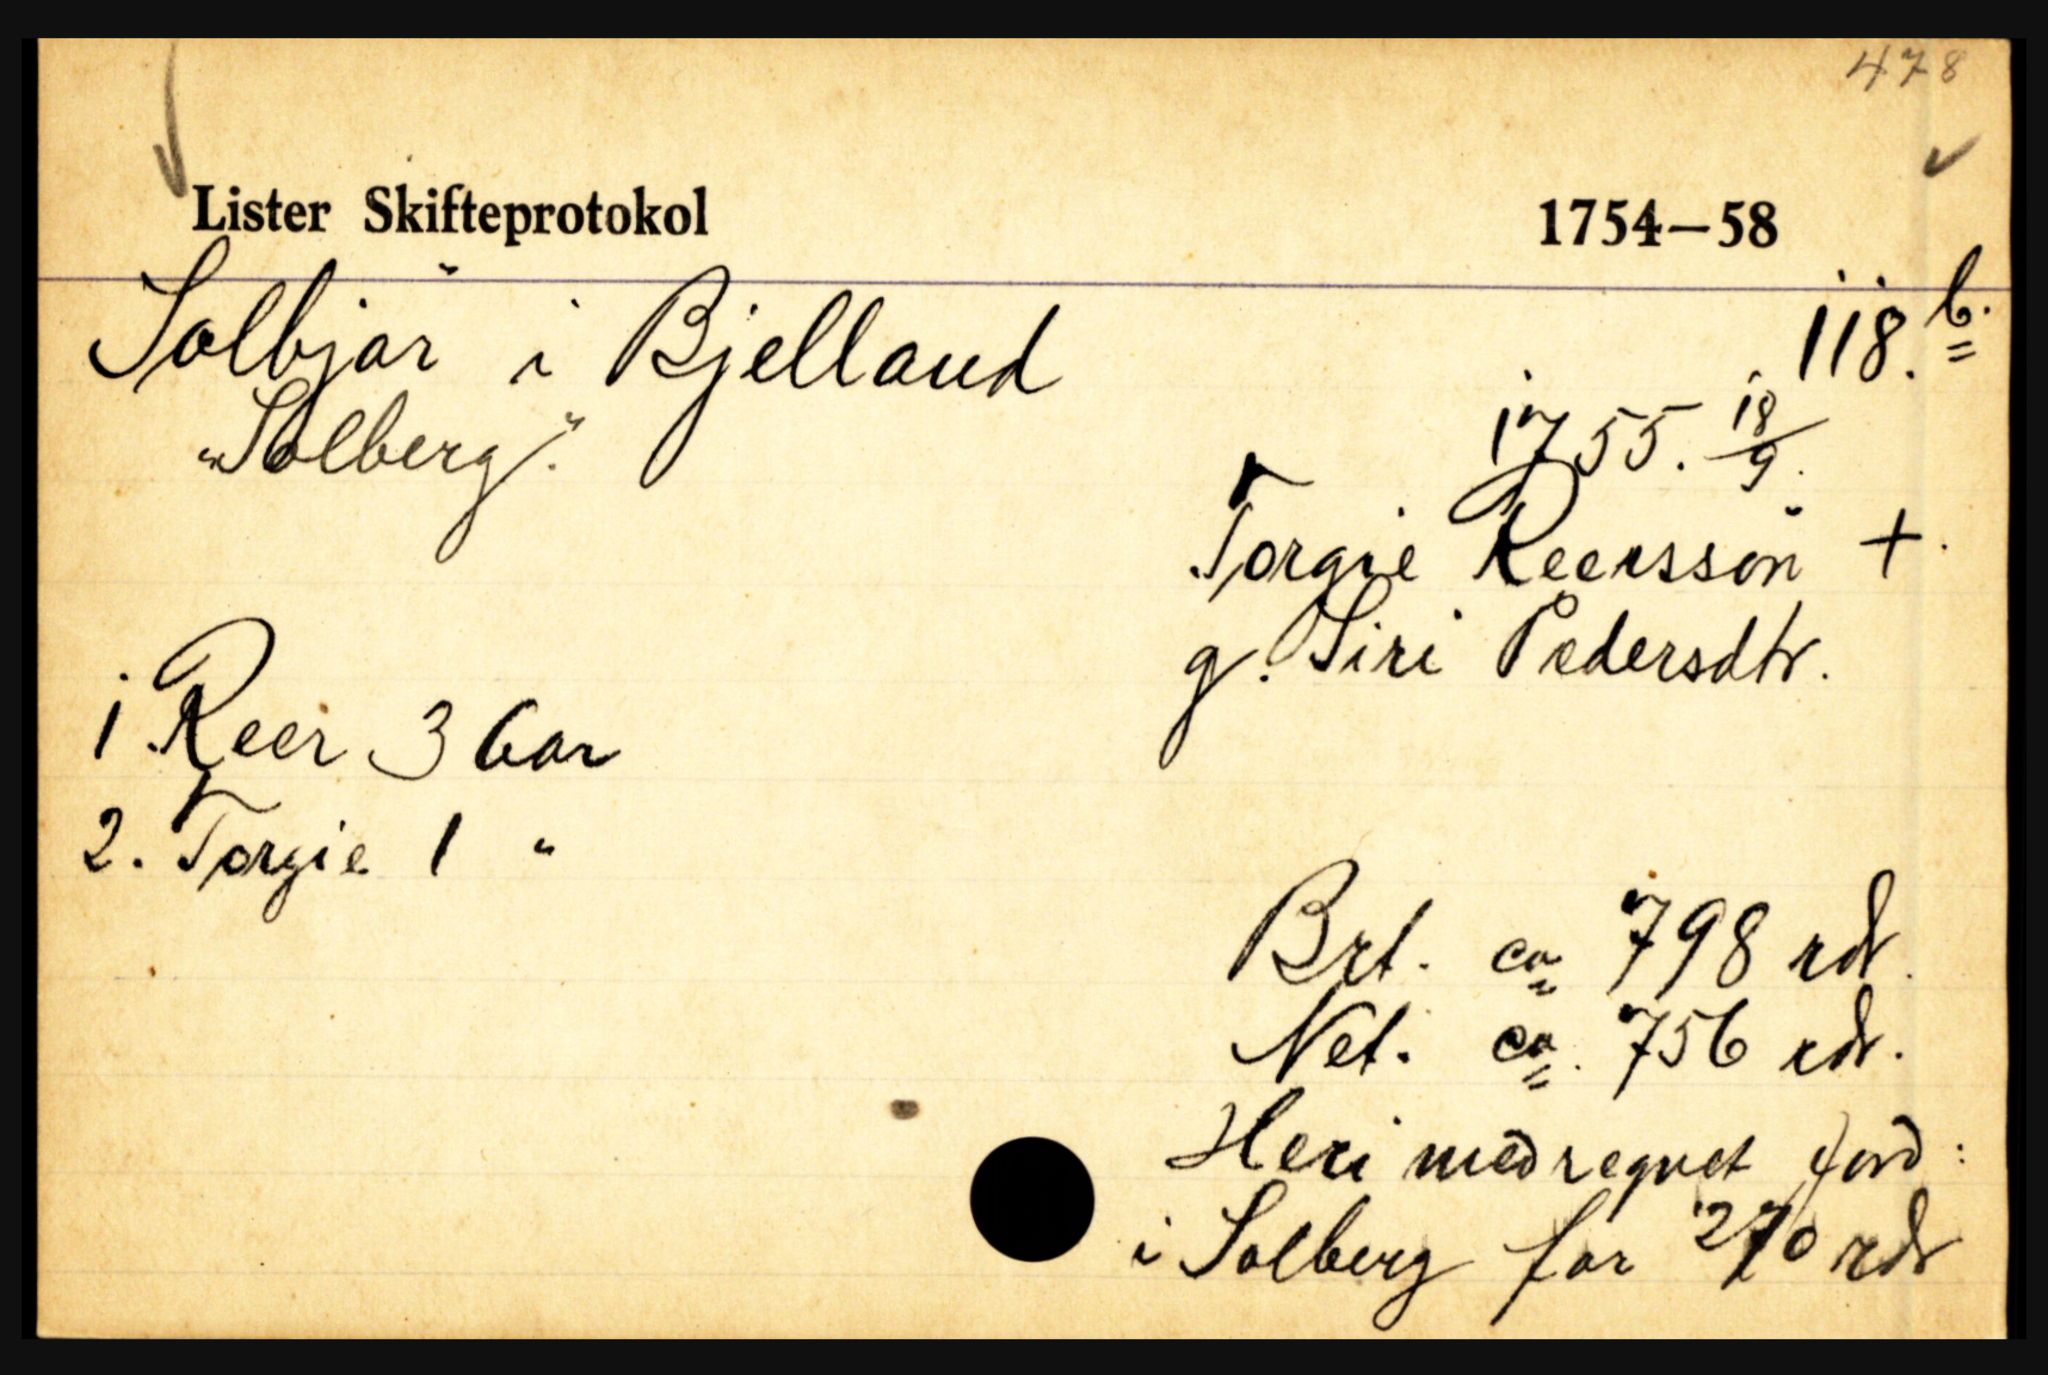 478
Lister Skifteprotokol 1754—58
Solbjör i Bjelland 118. b.
"Solberg".
1755. 18/9.
Torgie Reersson +
g. Siri Pedersdtr.
1 Reer 3 aar
2. Torgie 1 "
Brt. ca 798 rdr.
Net. ca. 756 rdr.
Heri medregnet jord:
i Solberg for 270 rdr